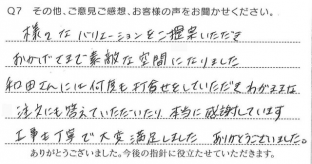 Q7 その他、ご意見ご感想、お客様の声をお聞かせください。
様々なバリエーションをご提案いただき
おかげさまで素敵な空間になりました
和田さんには何度も打合せをしていただき、わがままな
注文にも答えていただいたり 本当に感謝しています
工事も丁寧で大変満足しました ありがとうございました。
ありがとうございました。今後の指針に役立たせていただきます。